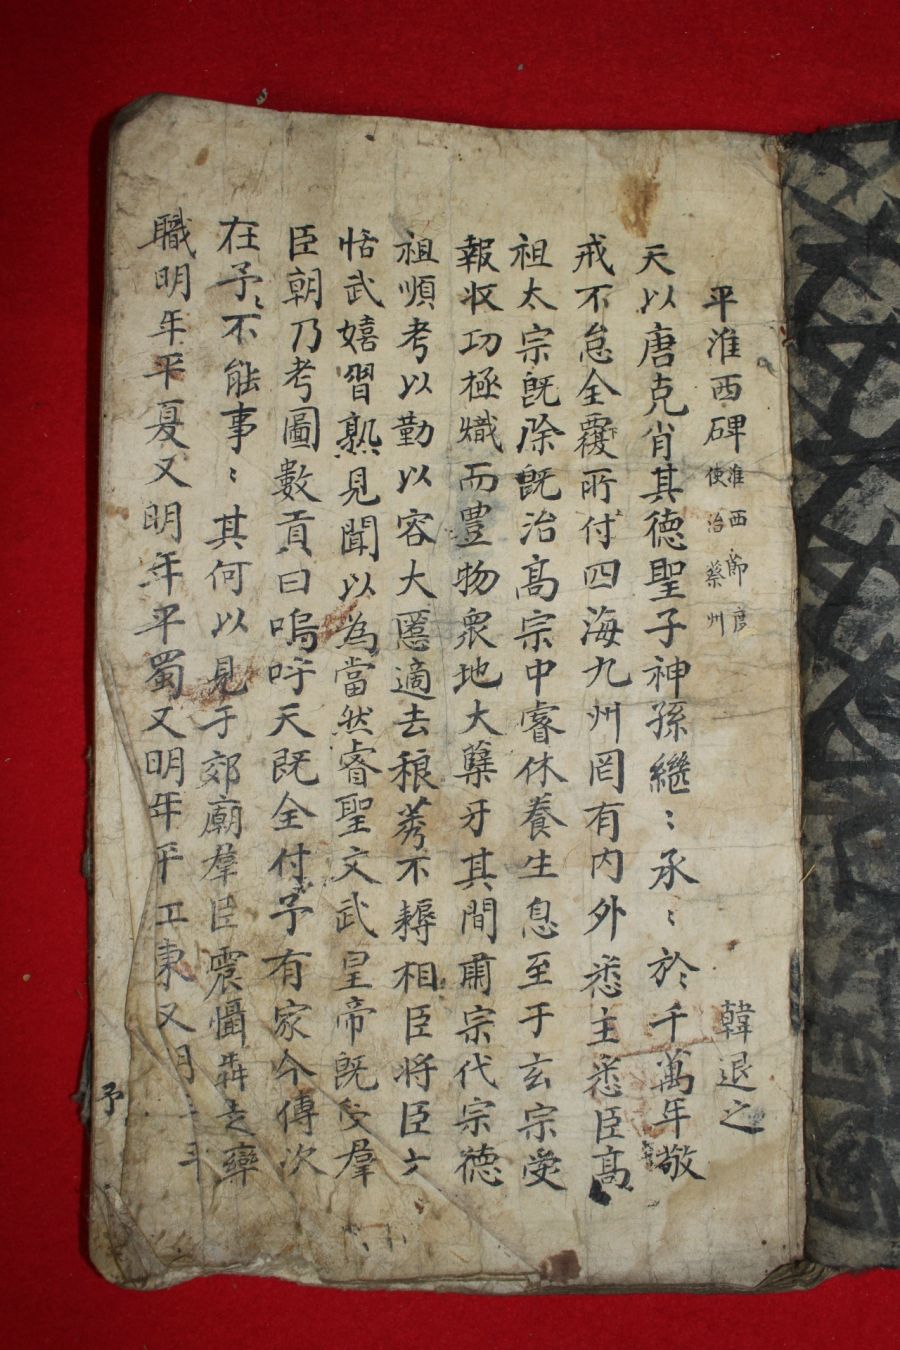 平淮西碑 淮西節度使治蔡州 韓退之
天以唐克肖其德聖子神孫繼〻承〻於千萬年敬
戒不怠全覆所付四海九州罔有内外悉主悉臣高
祖太宗旣除旣治高宗中睿休養生息至于玄宗受
報收功極熾而豊物衆地大孽牙其間肅宗代宗德
祖順考以勤以容大慝適去稂莠不耨相臣将臣文
恬武嬉習熟見聞以為當然睿聖文武皇帝旣受羣
臣朝乃考圖數貢曰嗚呼天既全付予有家今傳次
在予〻不能事〻其何以見于郊廟羣臣震懾犇走率
職明年平夏又明年平蜀又明年平江東又明年平
予